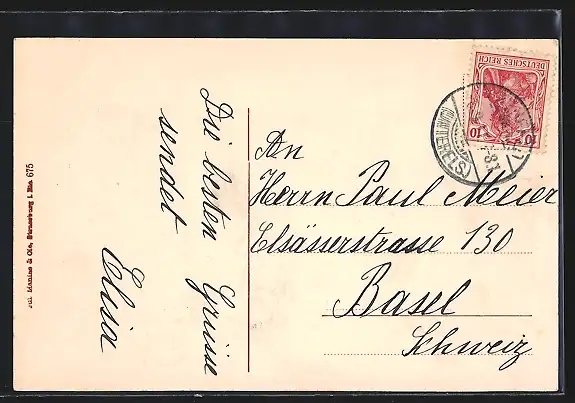 Die besten Grüsse
sendet
Elisa
An
Herrn Paul Meier
Elsässerstrasse 130
Basel
Schweiz
DEUTSCHES REICH
10 10
& Cie, Strassburg i. Els. 675